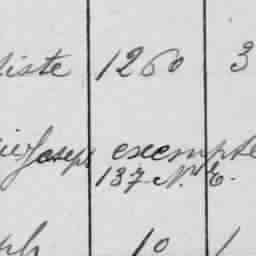 iste 1260 3
Joseph exempte
137 N. E.
ph 10 1